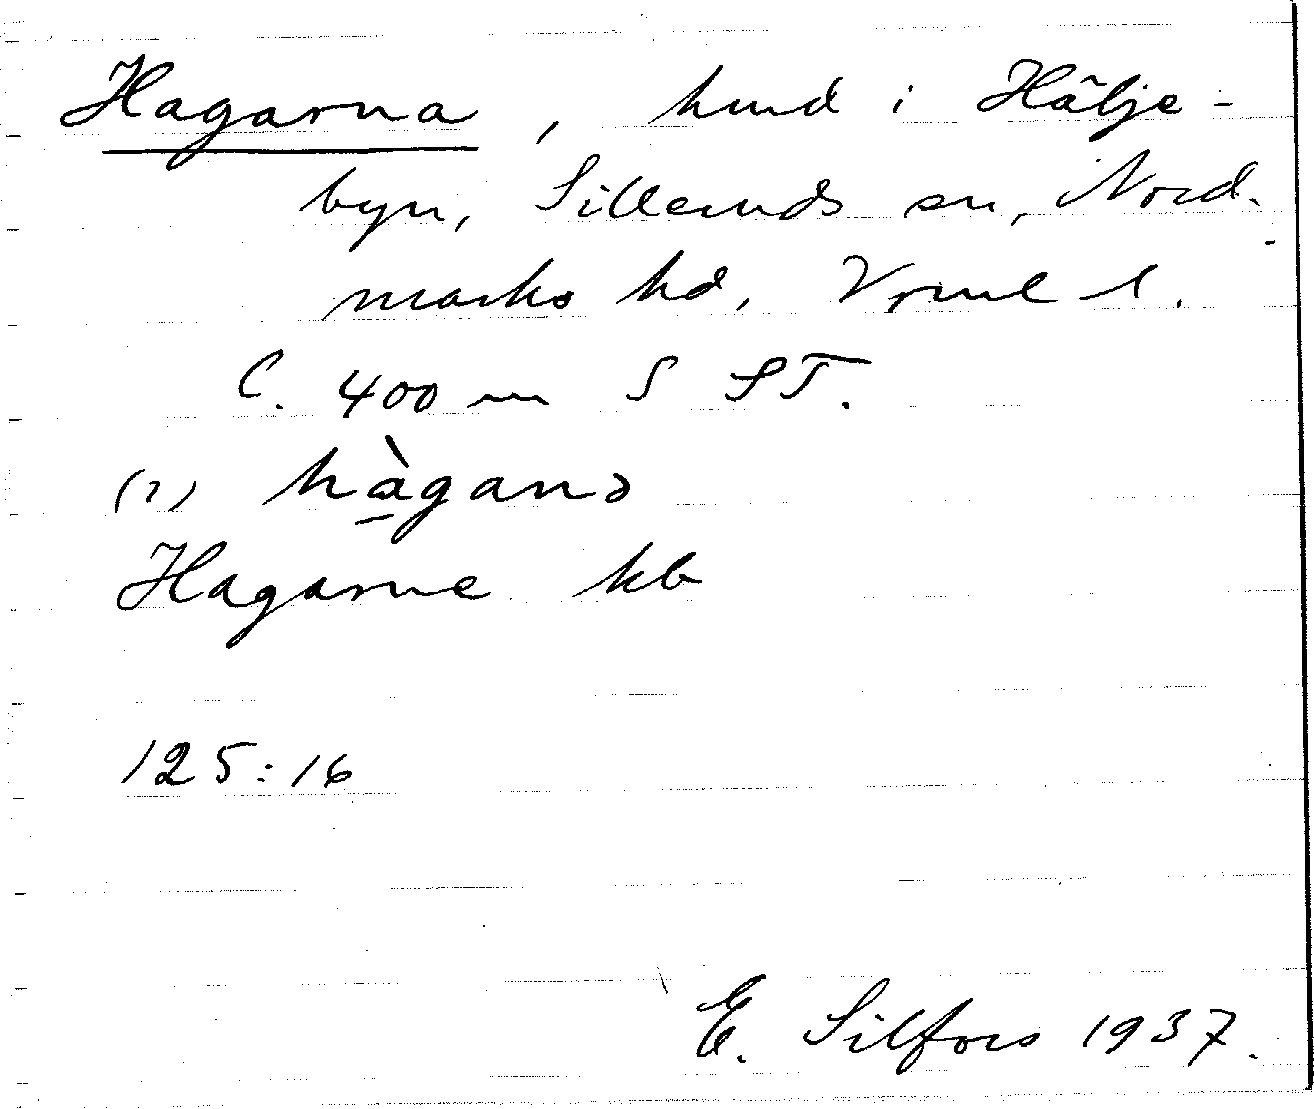 Hagarna, hmd i Hälje-
byn, Silleruds sn, Nord-
marks hd, Vrml l.
C. 400 m S ST.
(1) hàganə
Hagarne kb
125:16
E. Silfors 1937.